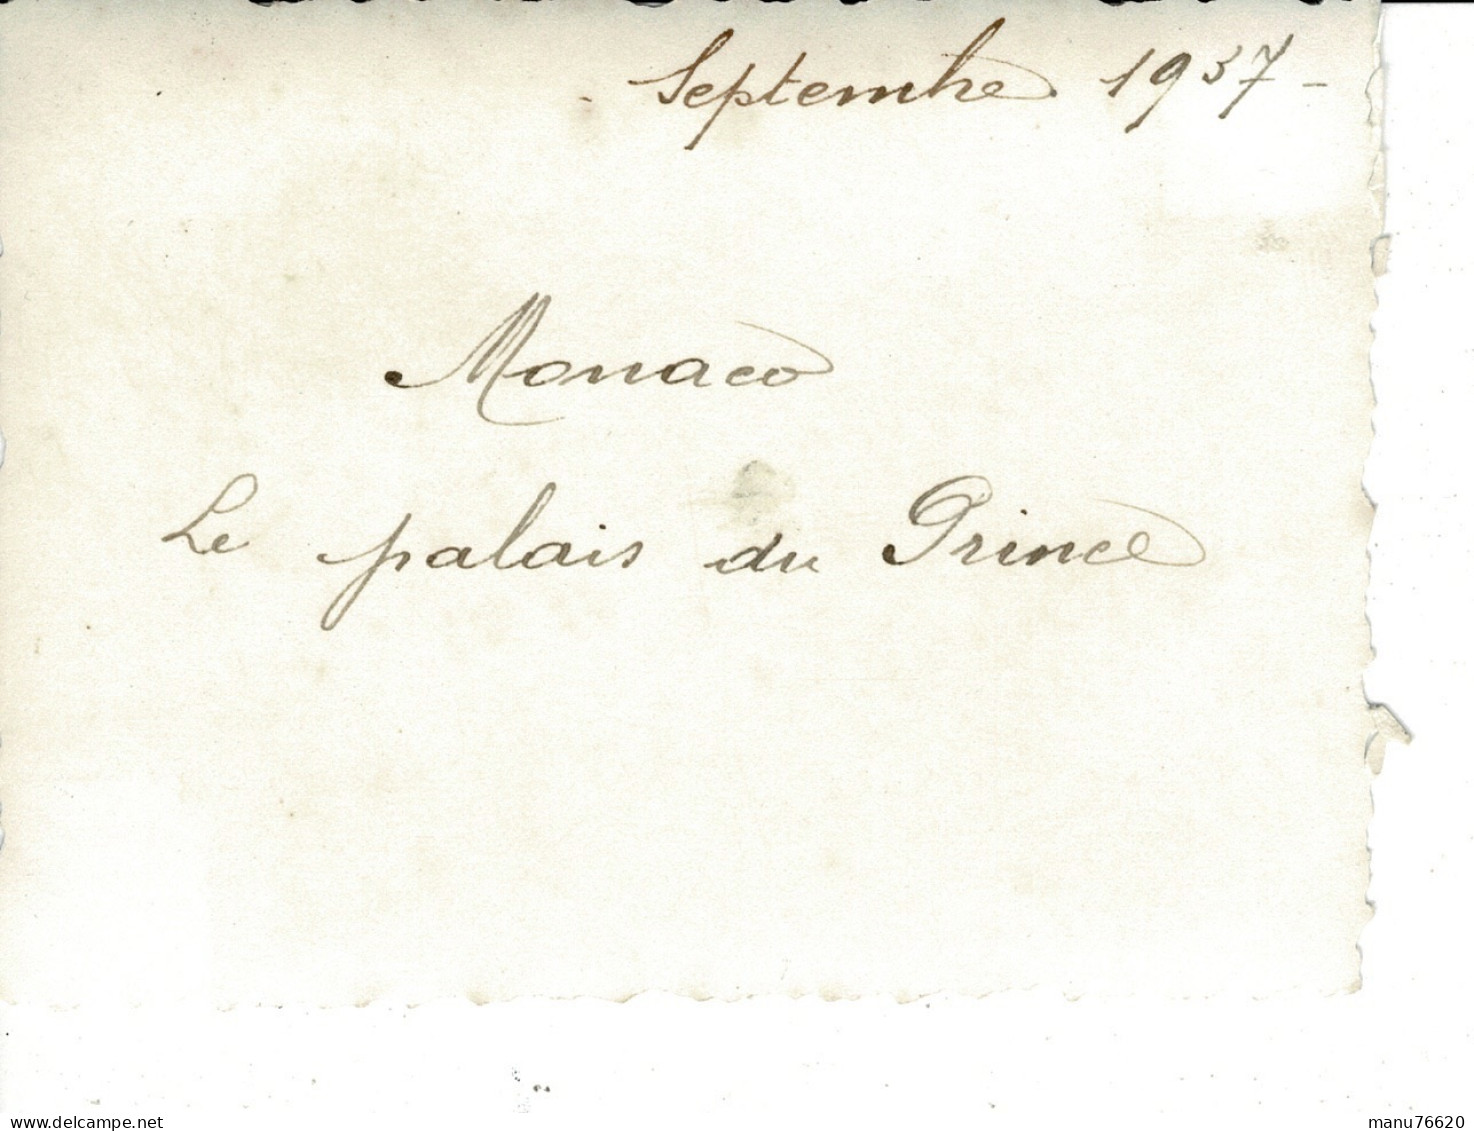 Septembre 1937 -
Monaco
Le palais du Prince
delcampe.net
manu76620